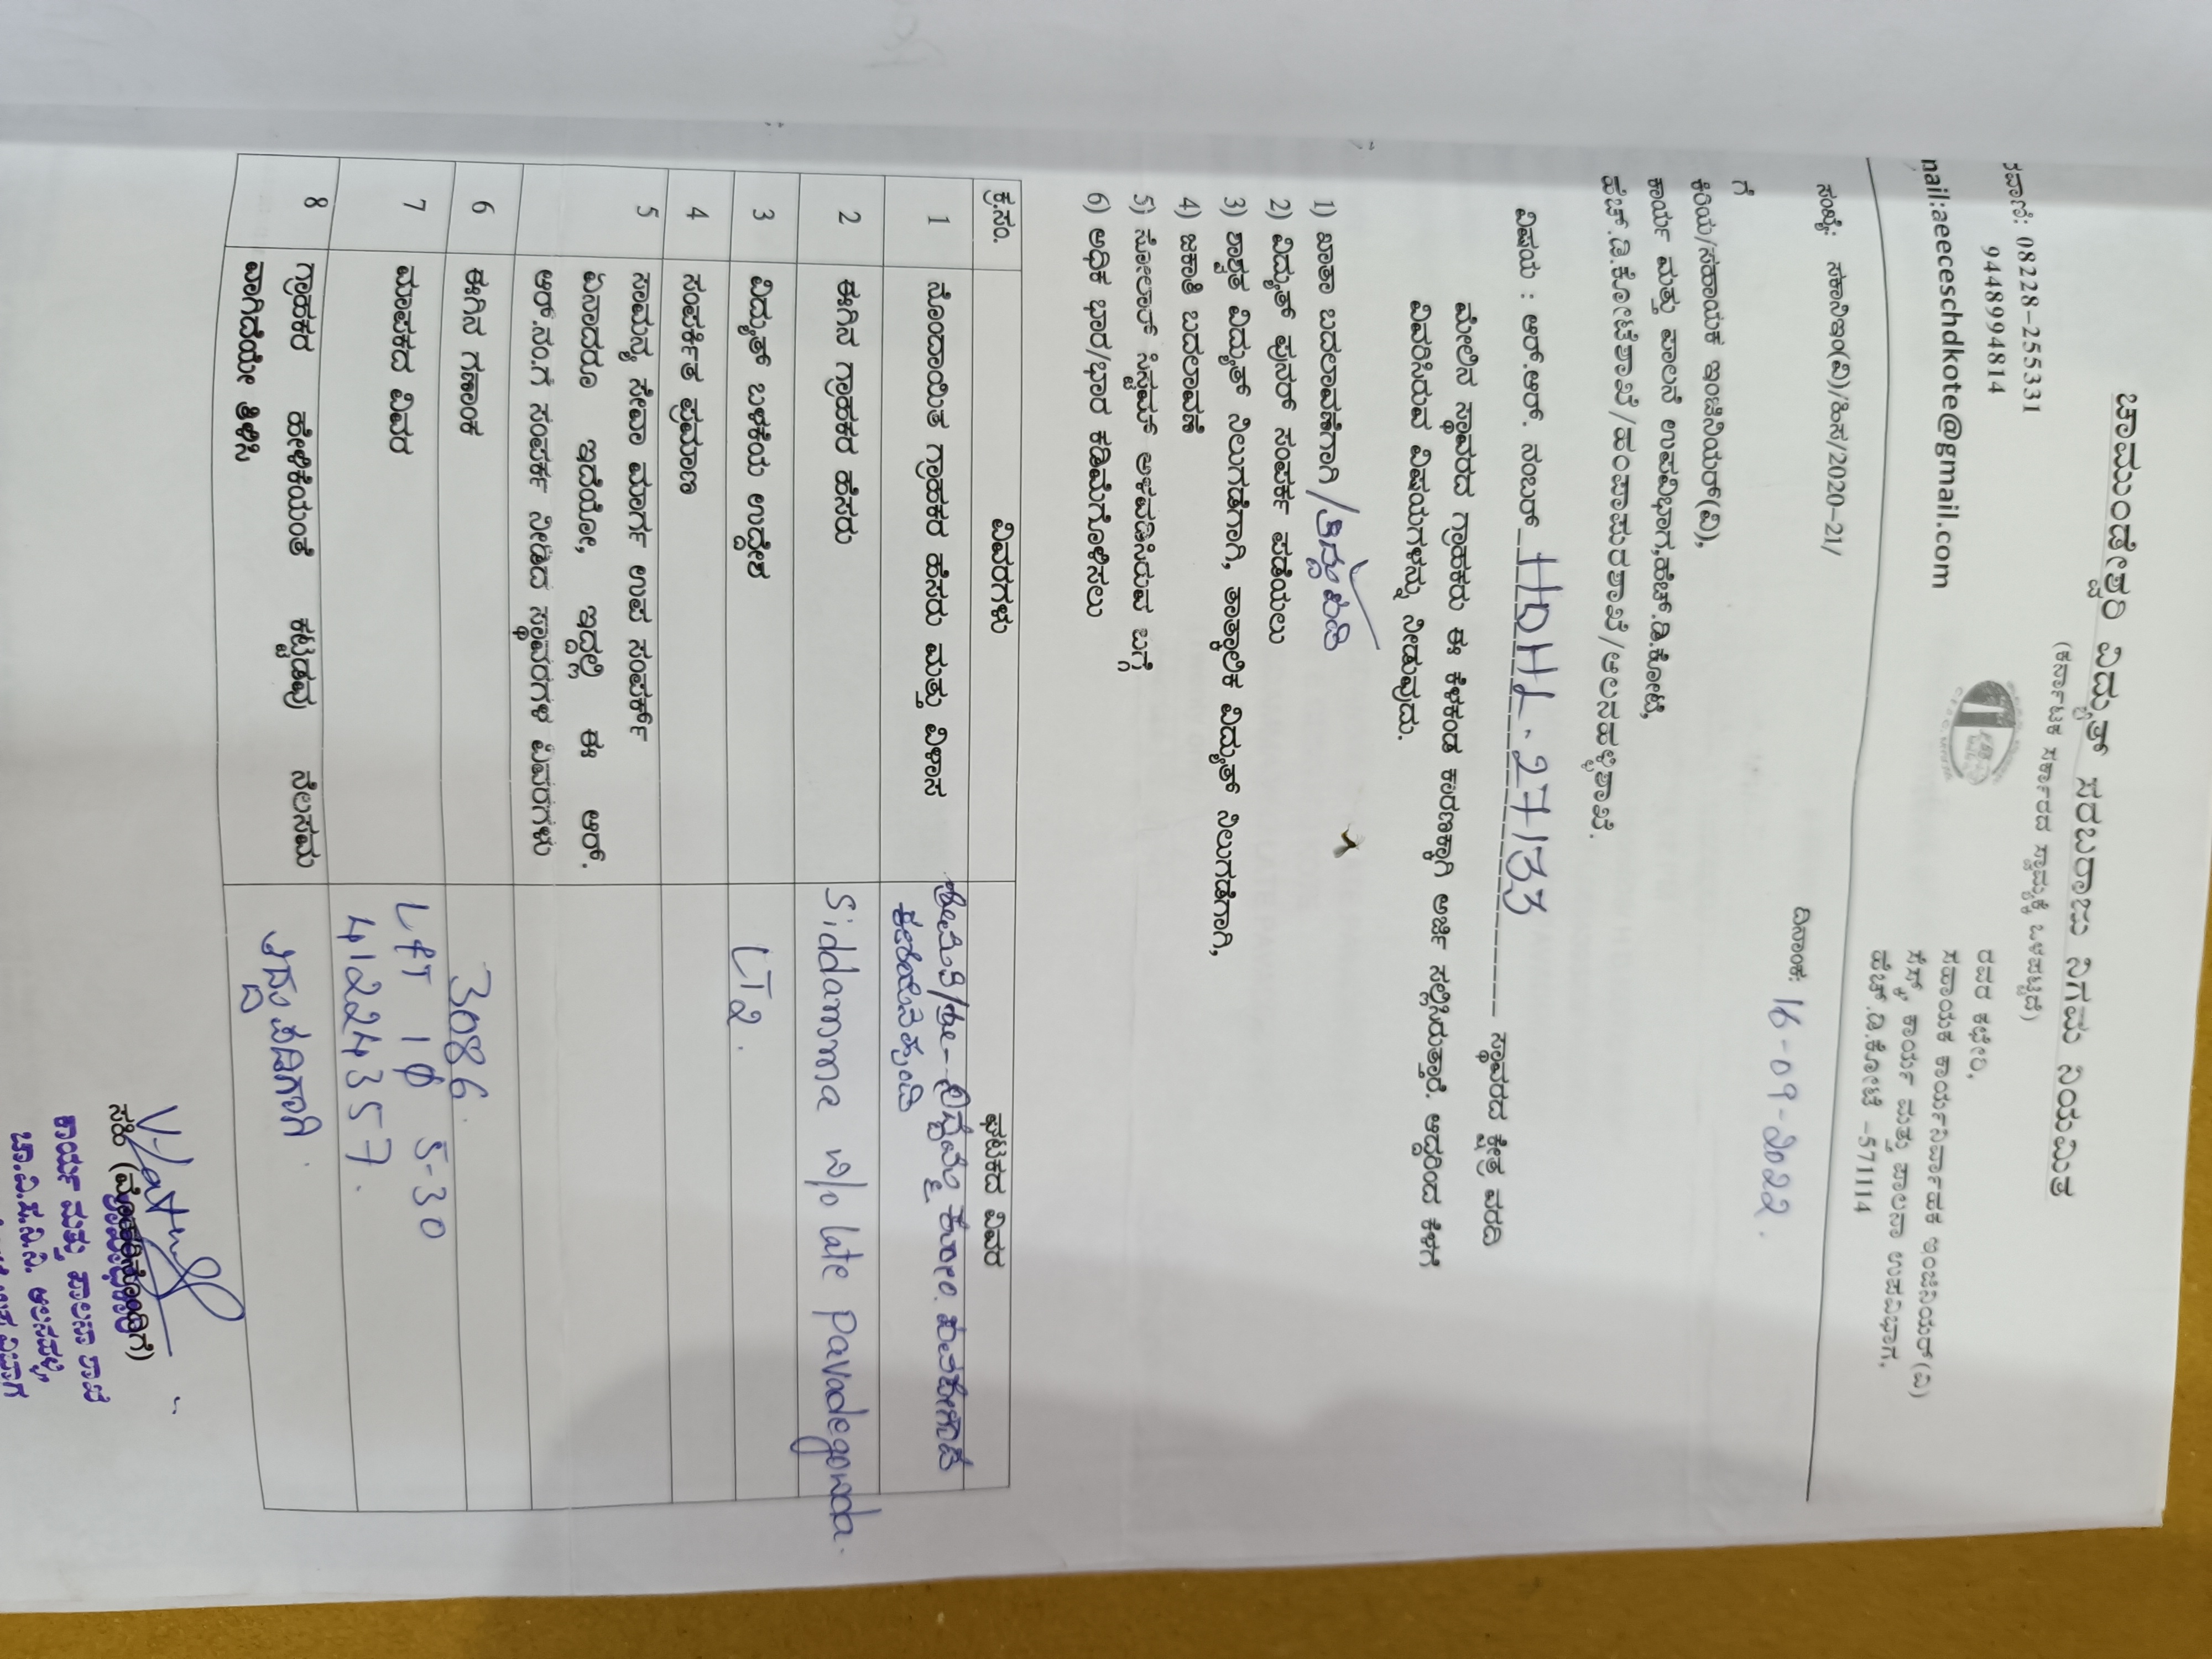 ಚಾಮುಂಡೇಶ್ವರಿ ವಿದ್ಯುತ್ ಸರಬರಾಜು ನಿಗಮ ನಿಯಮಿತ
(ಕರ್ನಾಟಕ ಸರ್ಕಾರದ ಸ್ವಾಮ್ಯಕ್ಕೆ ಒಳಪಟ್ಟಿದೆ)
08228-255331
9448994814
nail:aeeceschdkote@gmail.com
ರವರ ಕಛೇರಿ,
ಸಹಾಯಕ ಕಾರ್ಯನಿರ್ವಾಹಕ ಇಂಜಿನಿಯರ್(ವಿ)
ಸೆಸ್ಕ್, ಕಾರ್ಯ ಮತ್ತು ಪಾಲನಾ ಉಪವಿಭಾಗ,
ಹೆಚ್.ಡಿ.ಕೋಟೆ -571114
ಸಂಖ್ಯೆ: ಸಕಾನಿಇಂ(ವಿ)/ಹಿಸ/2020-21/ ದಿನಾಂಕ: 16-09-2022.
ಗೆ
ಕಿರಿಯ/ಸಹಾಯಕ ಇಂಜಿನಿಯರ್(ವಿ),
ಕಾರ್ಯ ಮತ್ತು ಪಾಲನೆ ಉಪವಿಭಾಗ,ಹೆಚ್.ಡಿ.ಕೋಟೆ,
ಹೆಚ್.ಡಿ.ಕೋಟೆಶಾಖೆ/ಹಂಪಾಪುರಶಾಖೆ/ಆಲನಹಳ್ಳಿಶಾಖೆ.
ವಿಷಯ : ಆರ್.ಆರ್. ನಂಬರ್ HDHL-27133 ಸ್ಥಾವರದ ಕ್ಷೇತ್ರ ವರದಿ
ಮೇಲಿನ ಸ್ಥಾವರದ ಗ್ರಾಹಕರು ಈ ಕೆಳಕಂಡ ಕಾರಣಕ್ಕಾಗಿ ಅರ್ಜಿ ಸಲ್ಲಿಸಿರುತ್ತಾರೆ. ಆದ್ದರಿಂದ ಕೆಳಗೆ
ವಿವರಿಸಿರುವ ವಿಷಯಗಳನ್ನು ನೀಡುವುದು.
1) ಖಾತಾ ಬದಲಾವಣೆಗಾಗಿ /ತಿದ್ದುಪಡಿ
2) ವಿದ್ಯುತ್ ಪುನರ್ ಸಂಪರ್ಕ ಪಡೆಯಲು
3) ಶಾಶ್ವತ ವಿದ್ಯುತ್ ನಿಲುಗಡೆಗಾಗಿ, ತಾತ್ಕಾಲಿಕ ವಿದ್ಯುತ್ ನಿಲುಗಡೆಗಾಗಿ,
4) ಜಕಾತಿ ಬದಲಾವಣೆ
5) ಸೋಲಾರ್ ಸಿಸ್ಟಮ್ ಅಳವಡಿಸಿರುವ ಬಗ್ಗೆ
6) ಅಧಿಕ ಭಾರ/ಭಾರ ಕಡಿಮೆಗೊಳಿಸಲು
ಕ್ರ.ಸಂ. ವಿವರಗಳು ಘಟಕದ ವಿವರ
1 ನೊಂದಾಯಿತ ಗ್ರಾಹಕರ ಹೆಸರು ಮತ್ತು ವಿಳಾಸ
2 ಈಗಿನ ಗ್ರಾಹಕರ ಹೆಸರು Siddamma w/o late pavadegowda.
3 ವಿದ್ಯುತ್ ಬಳಕೆಯ ಉದ್ದೇಶ LT2.
4 ಸಂಪರ್ಕಿತ ಪ್ರಮಾಣ
5 ಸಾಮಾನ್ಯ ಸೇವಾ ಮಾರ್ಗ ಉಪ ಸಂಪರ್ಕ
ಏನಾದರೂ ಇದೆಯೋ, ಇದ್ದಲ್ಲಿ ಈ ಆರ್.
ಆರ್.ನಂ.ಗೆ ಸಂಪರ್ಕ ನೀಡಿದ ಸ್ಥಾವರಗಳ ವಿವರಗಳು
6 ಈಗಿನ ಗಣಾಂಕ 3086.
7 ಮಾಪಕದ ವಿವರ L&T 1φ 5-30
41224357.
8 ಗ್ರಾಹಕರ ಹೇಳಿಕೆಯಂತೆ ಕಟ್ಟಡವು ನೆಲಸಮ
ವಾಗಿದೆಯೇ ತಿಳಿಸಿ
ಸಹಿ (ಮೊಹರಿನೊಂದಿಗೆ)
ಕಾರ್ಯ ಮತ್ತು ಪಾಲನಾ ಶಾಖೆ